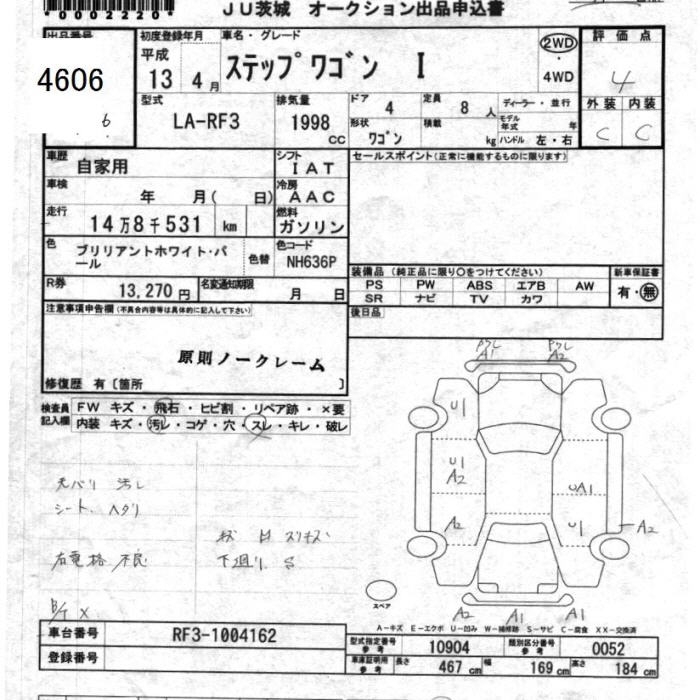 *0002220*
JU茨城 オークション出品申込書
出品番号
4606
6
初度登録年月
平成
13 4月
車名・グレード
ステップワゴン I
2WD
・
4WD
評価点
4
外装 内装
C C
型式
LA-RF3
排気量
1998 CC
ドア 4
定員 8 人
形状 ワゴン
積載 kg
ディーラー・並行
モデル年式 年
ハンドル 左・右
車歴 自家用
シフト IAT
車検 年 月( 日)
冷房 AAC
走行 14万8千531 km
燃料 ガソリン
色 ブリリアントホワイト・パール
色替
色コード NH636P
R券 13,270円
名変通知期限 月 日
セールスポイント(正常に機能するものに限ります)
装備品 (純正品に限り○をつけてください)
PS PW ABS エアB AW
SR ナビ TV カワ
新車保証書
有・無
後日品
注意事項申告欄(不具合内容等は具体的に記入して下さい)
原則ノークレーム
修復歴 有〔箇所 〕
検査員記入欄
FW キズ・飛石・ヒビ割・リペア跡・×要
内装 キズ・汚レ・コゲ・穴・スレ・キレ・破レ
汚し
シート
下廻り S
A1 A2
U1
U1
A2
UA1
A2
U1
A2
スペア
A2 A1 A1
A-キズ E-エクボ U-凹み W-補修跡 S-サビ C-腐食 XX-交換済
車台番号 RF3-1004162
登録番号
型式指定番号 参考 10904
類別区分番号 参考 0052
車庫証明用 参考 長さ 467 cm 幅 169 cm 高さ 184 cm